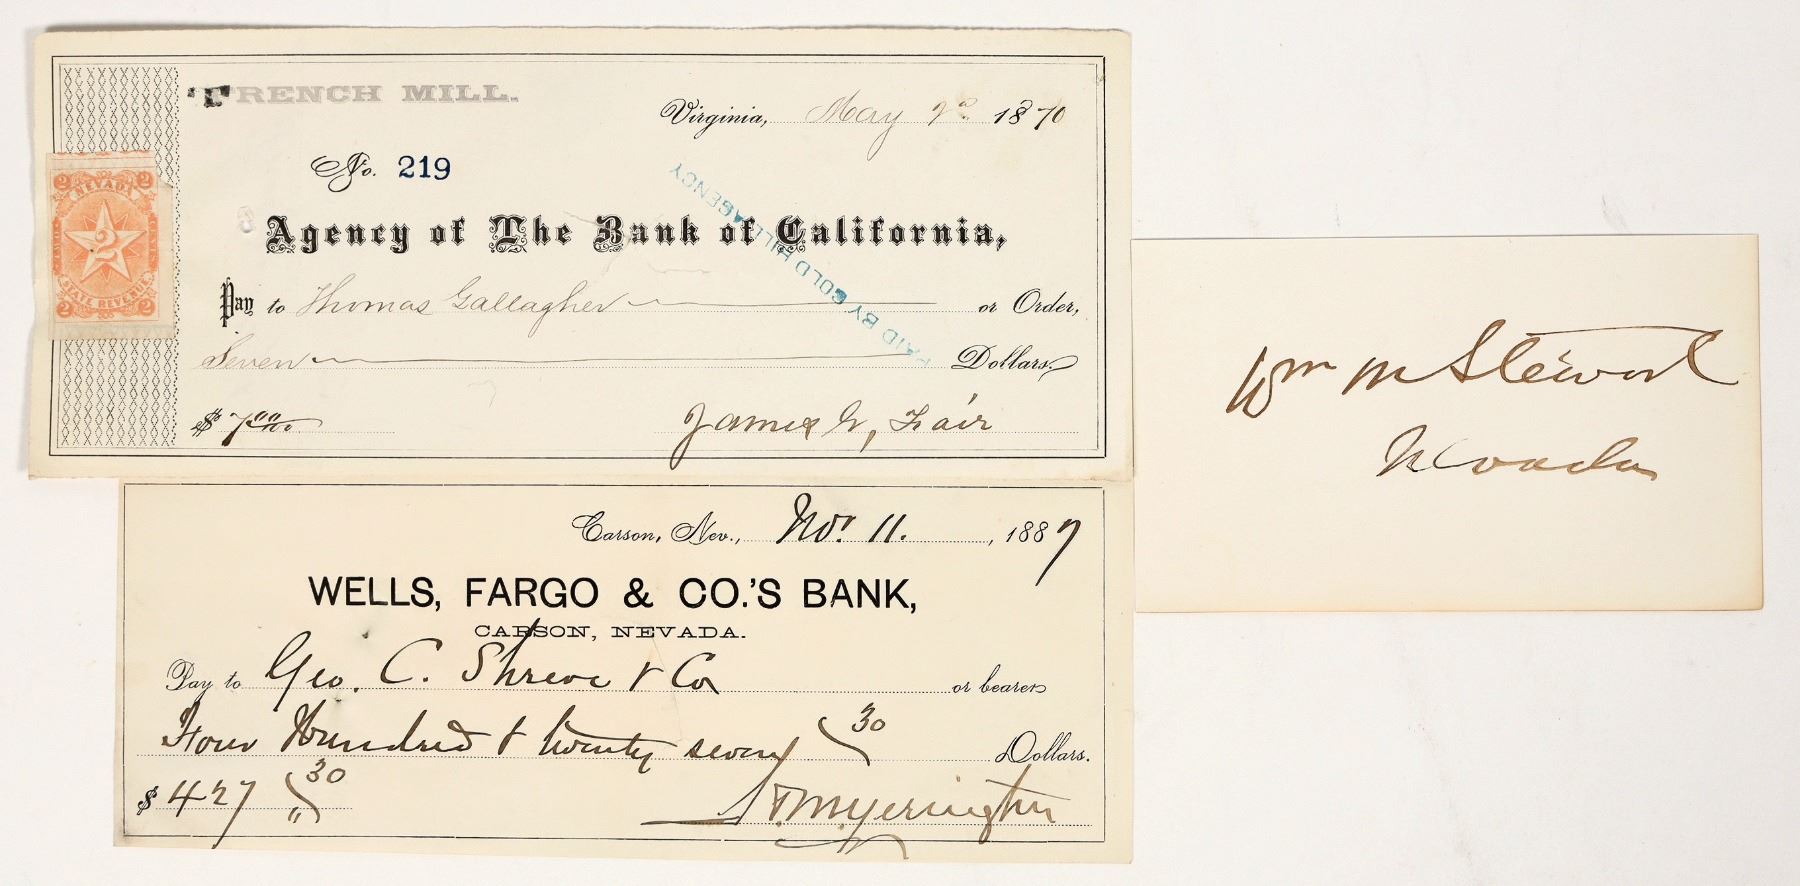 FRENCH MILL.
Virginia, May 2d 1870
No. 219
Agency of The Bank of California,
Pay to Thomas Gallagher or Order,
Seven Dollars.
$ 7.00/100
James G, Fair
PAID BY GOLD HILL AGENCY
2 NEVADA 2
2
STATE REVENUE
2 2
Carson, Nev., Nov 11. , 1887
WELLS, FARGO & CO.'S BANK,
CARSON, NEVADA.
Pay to Geo. C. Shreve & Co or bearer
Four Hundred & twenty seven 30 Dollars.
$ 427 " 30
H.M. Yerington
Wm M Stewart
Nevada